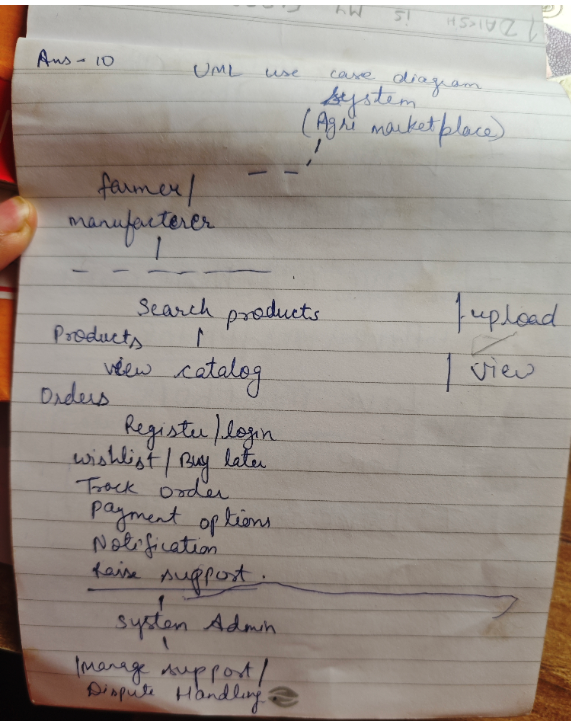 Ans-10
UML use case diagram
System
(Agri marketplace)
farmer/
manufacterer
Search products
| upload
Products
view catalog
| view
Orders
Register/login
wishlist/Buy later
Track order
Payment options
Notification
Raise support.
System Admin
|manage support/
Dispute Handling